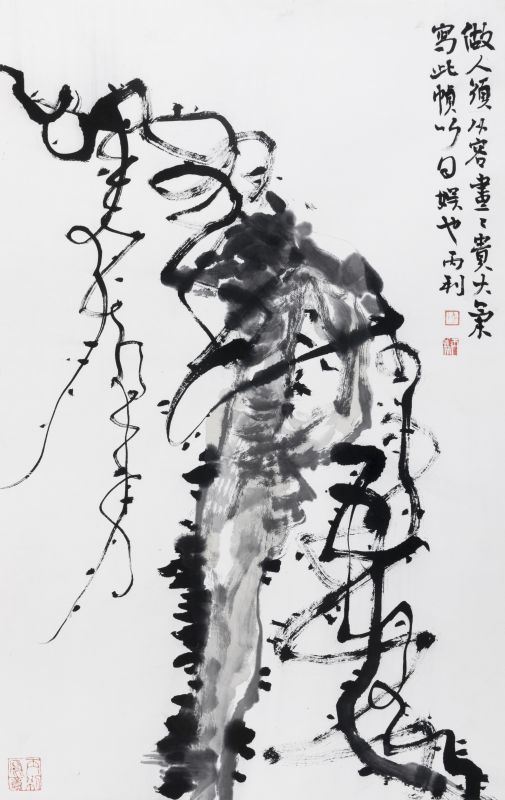 做人須从容畫〻貴大氣
寫此幀以自娱也丙利